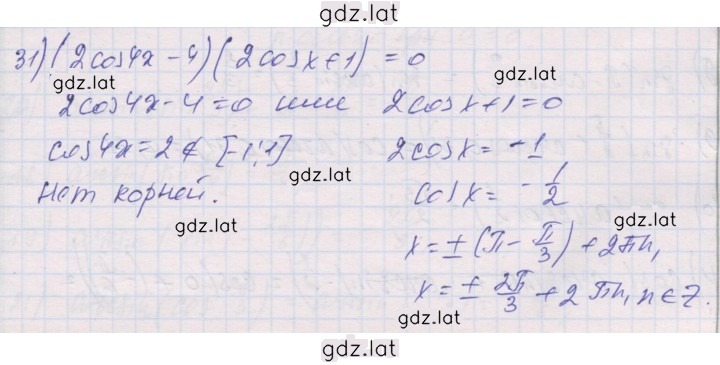 gdz.lat
31) (2cos4x - 4)(2cosx + 1) = 0
gdz.lat gdz.lat
2cos4x - 4 = 0 или 2cosx + 1 = 0
cos4x = 2 ∉ [-1; 1] 2cosx = -1
gdz.lat
Нет корней. cosx = -1/2
gdz.lat
x = ±(π - π/3) + 2πn,
gdz.lat
x = ± 2π/3 + 2πn, n ∈ Z.
gdz.lat
gdz.lat